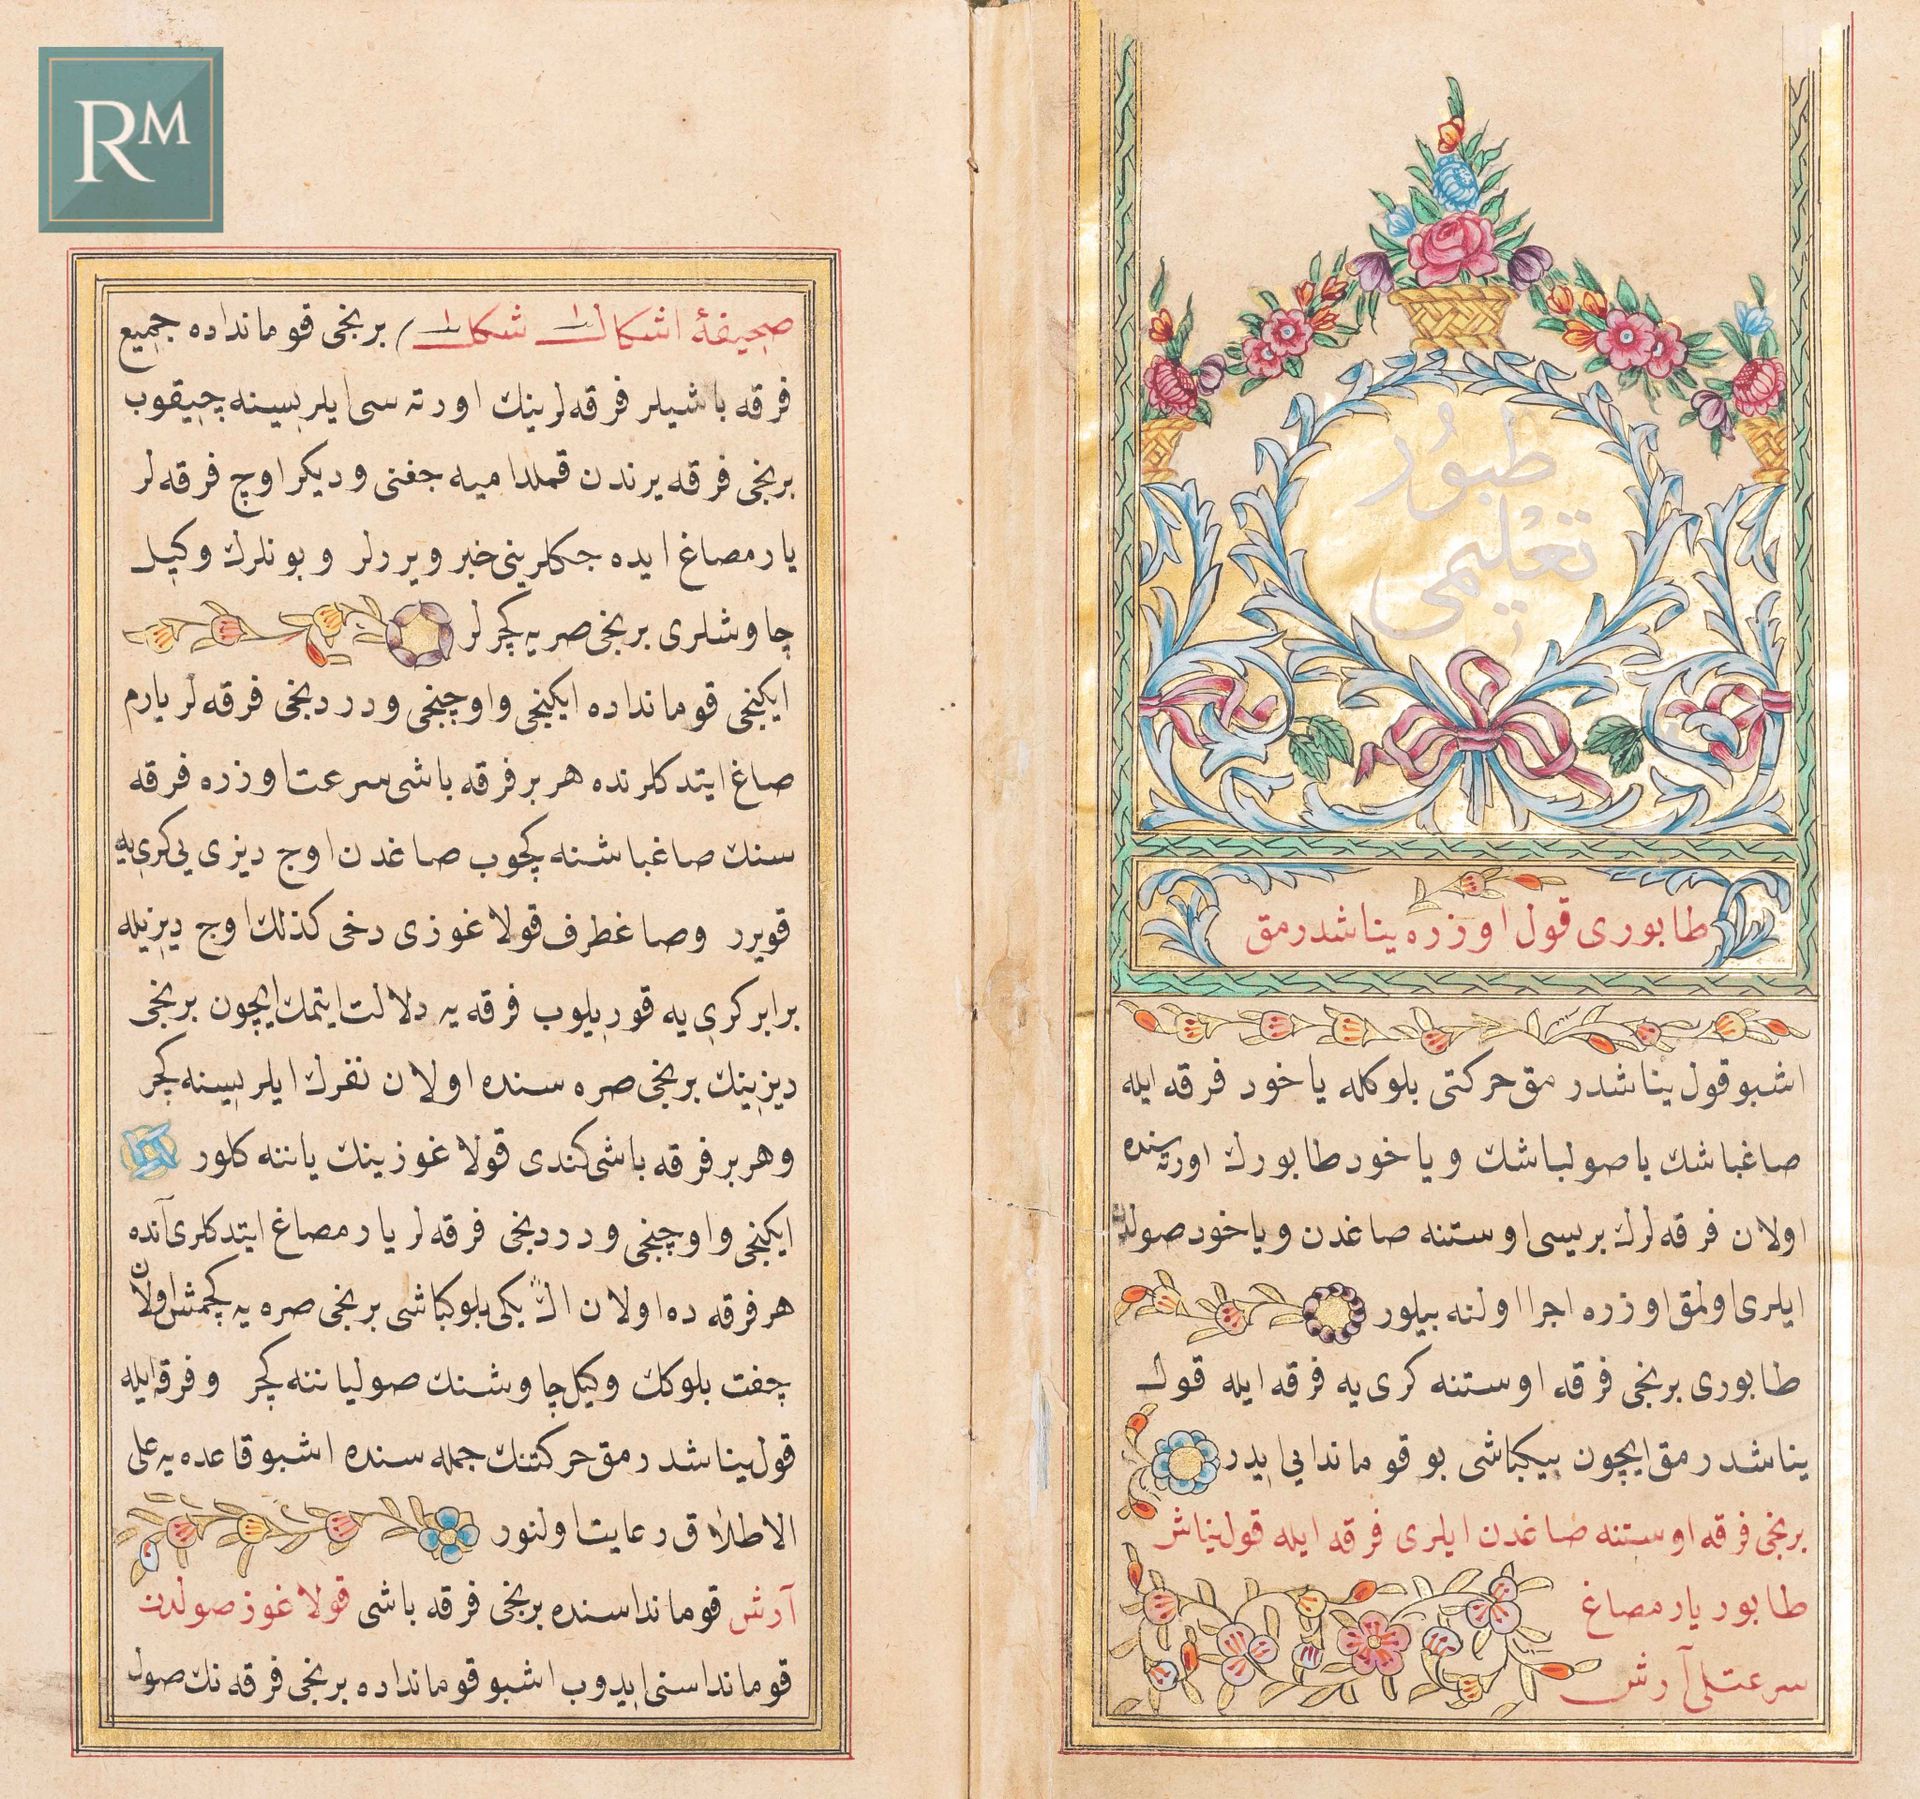 طبور
تعليمى
طابورى قول اوزره يناشدرمق
اشبو قول يناشدرمق حركتى بلوكله ياخود فرقه ايله
صاغباشك يا صولباشك ويا خود طابورك اورته سنده
اولان فرقه لرك بريسى اوستنه صاغدن ويا خود صولدن
ايلرى اولمق اوزره اجرا اولنه بيلور
طابورى برنجى فرقه اوستنه كرى يه فرقه ايله قول
يناشدرمق ايچون بيكباشى بو قوماندايى ايدر
برنجى فرقه اوستنه صاغدن ايلرى فرقه ايله قول يناش
طابور يارم صاغ
سرعتلى آرش
RM
صحيفۀ اشكال ١ شكل ١ برنجى قومانداده جميع
فرقه باشيلر فرقه لرينك اورته سى ايلريسنه چيقوب
برنجى فرقه يرندن قملدامیه جغنى وديكر اوچ فرقه لر
يارم صاغ ايده جكلرينى خبر ويررلر وبونلرك وكيل
چاوشلرى برنجى صره يه كچرلر
ايكنجى قومانداده ايكنجى واوچنجى ودردنجى فرقه لر يارم
صاغ ايتدكلرنده هر بر فرقه باشى سرعت اوزره فرقه
سنك صاغباشنه كچوب صاغدن اوچ ديزى يى كرى يه
قويرر وصاغ طرف قولاغوزى دخى كذلك اوچ ديزيله
برابر كرى يه قوريلوب فرقه يه دلالت ايتمك ايچون برنجى
ديزينك برنجى صره سنده اولان نفرك ايلريسنه كچر
وهر بر فرقه باشى كندى قولاغوزينك ياننه كلور
ايكنجى واوچنجى ودردنجى فرقه لر يارم صاغ ايتدكلرى آنده
هر فرقه ده اولان اك يكى بلوكباشى برنجى صره يه كچمش اولان
چفت بلوكك وكيل چاوشنك صول ياننه كچر وفرقه ايله
قول يناشدرمق حركتنك جمله سنده اشبو قاعده يه على
الاطلاق رعايت اولنور
آرش قومانداسنده برنجى فرقه باشى قولاغوز صولدن
قومانداسنى ايدوب اشبو قومانداده برنجى فرقه نك صول